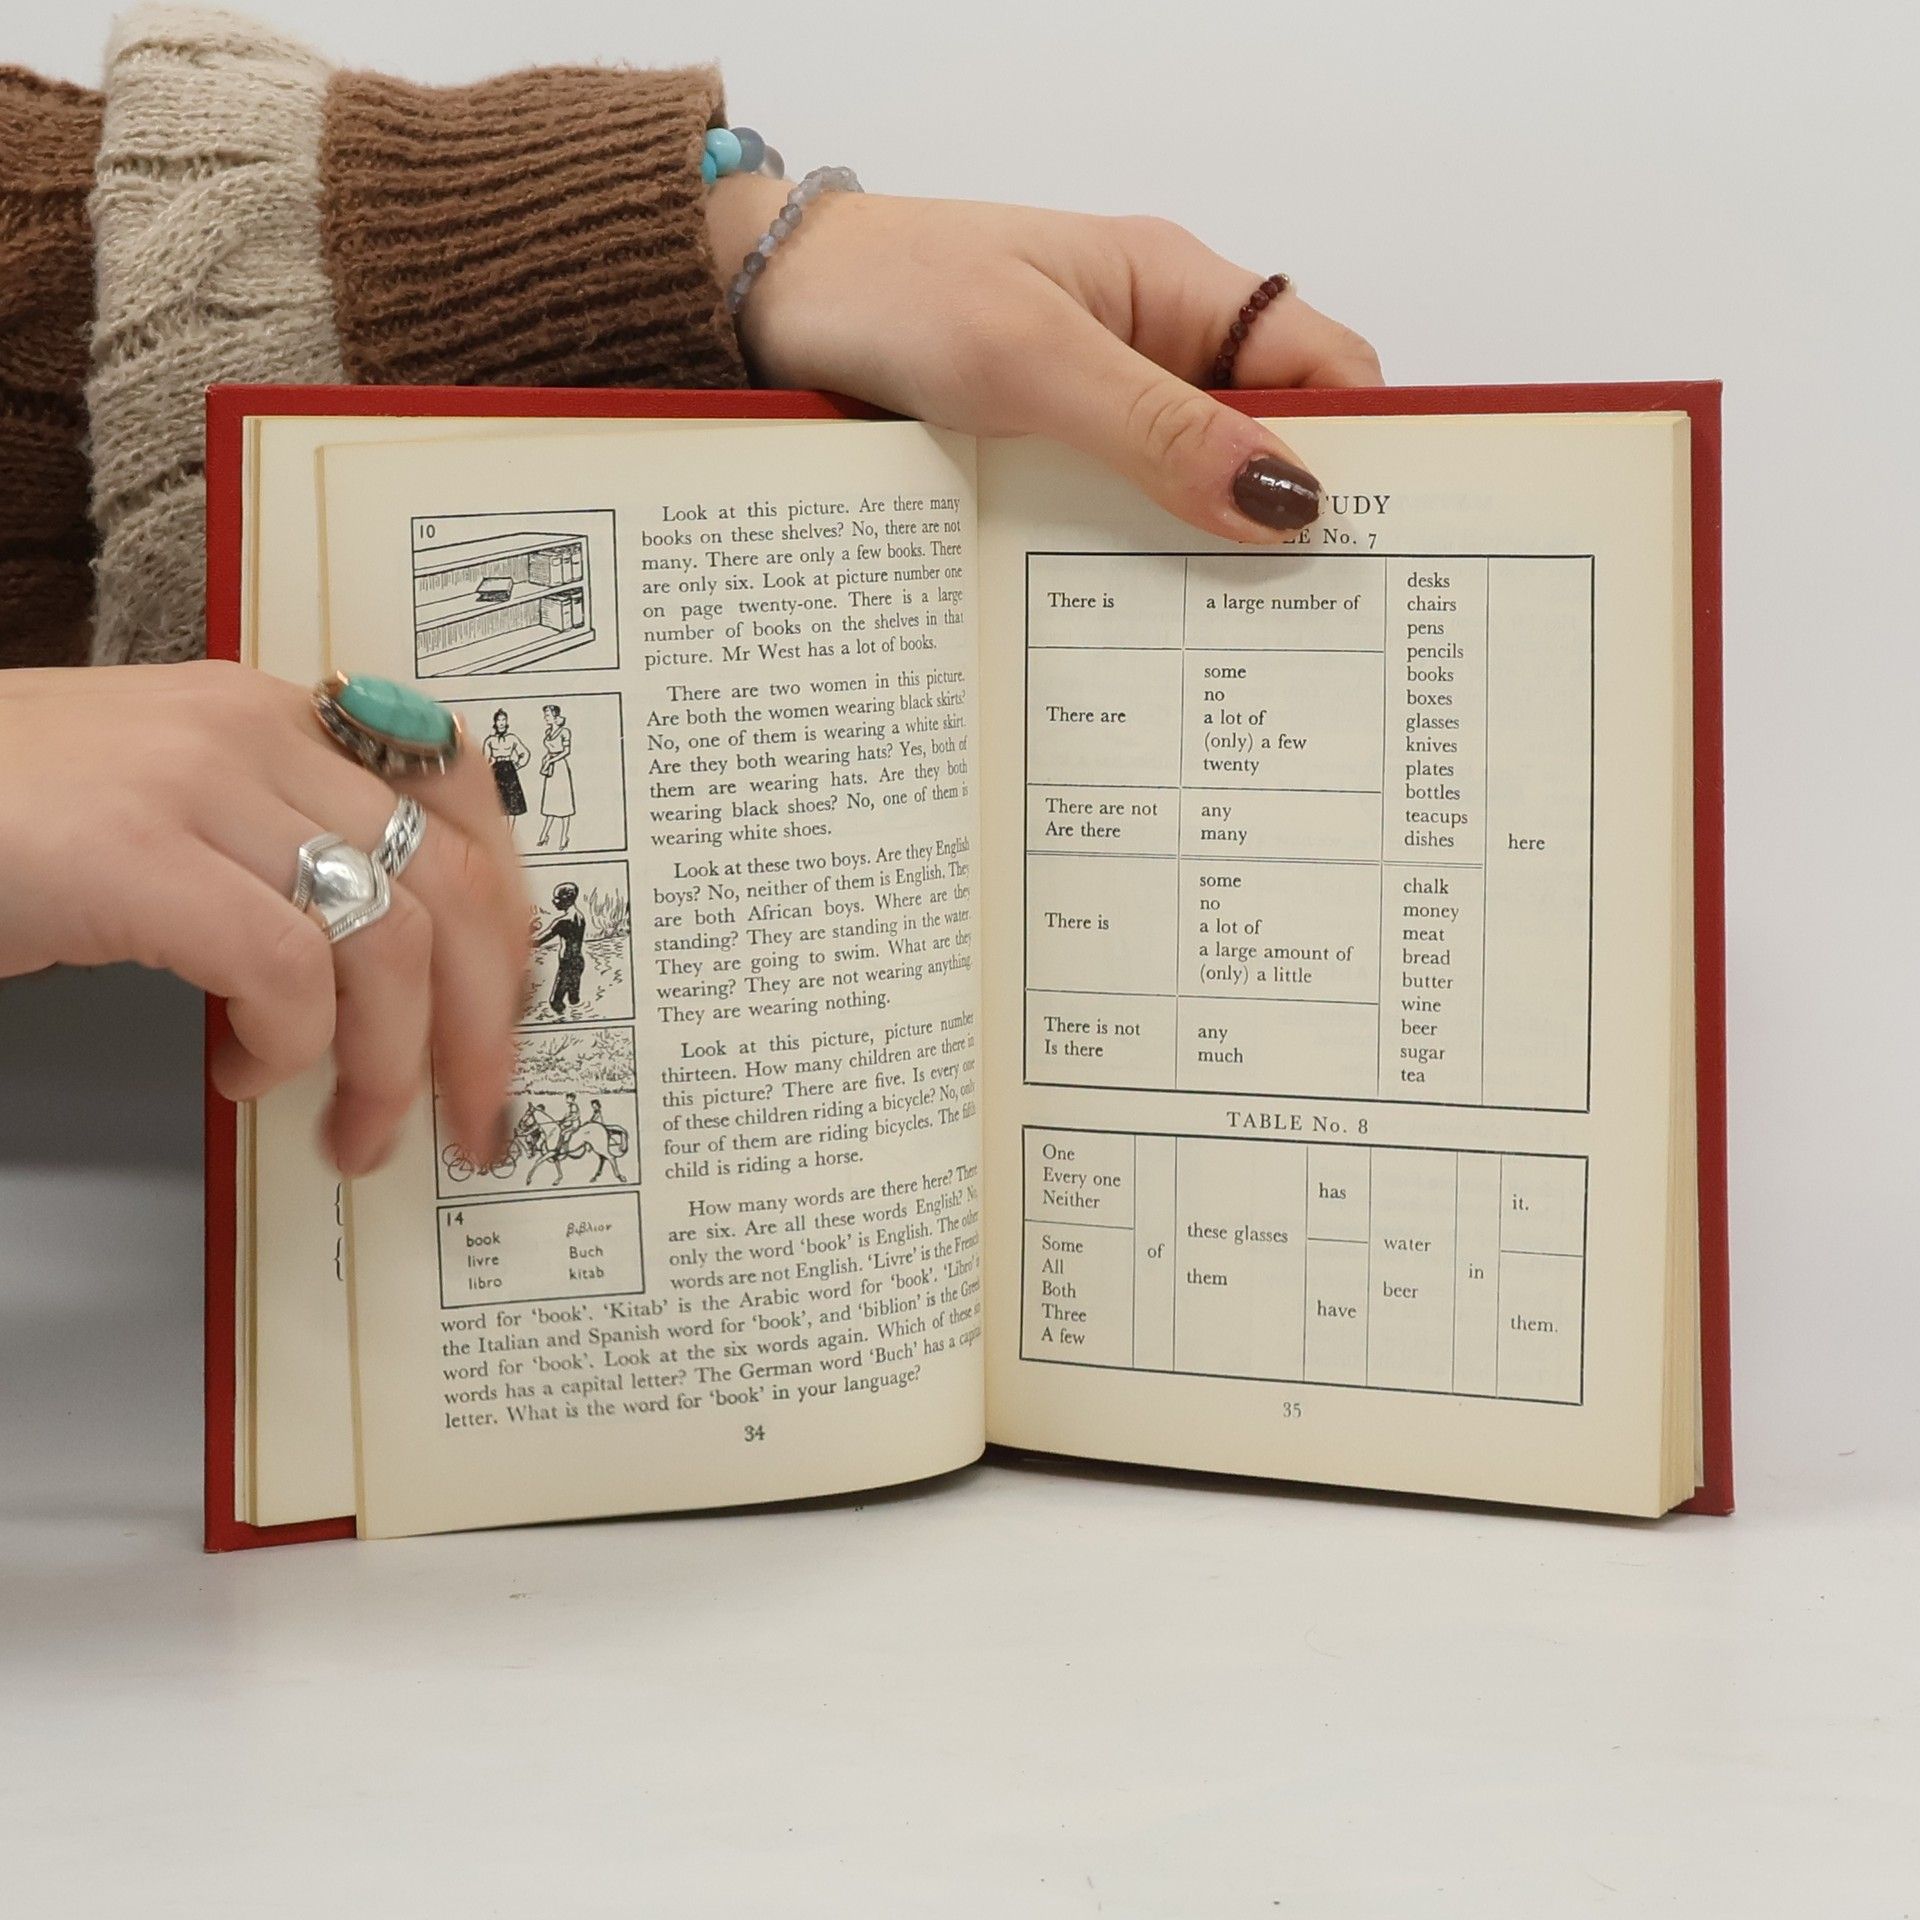 10
Look at this picture. Are there many
books on these shelves? No, there are not
many. There are only a few books. There
are only six. Look at picture number one
on page twenty-one. There is a large
number of books on the shelves in that
picture. Mr West has a lot of books.
There are two women in this picture.
Are both the women wearing black skirts?
No, one of them is wearing a white skirt.
Are they both wearing hats? Yes, both of
them are wearing hats. Are they both
wearing black shoes? No, one of them is
wearing white shoes.
Look at these two boys. Are they English
boys? No, neither of them is English. They
are both African boys. Where are they
standing? They are standing in the water.
They are going to swim. What are they
wearing? They are not wearing anything.
They are wearing nothing.
Look at this picture, picture number
thirteen. How many children are there in
this picture? There are five. Is every one
of these children riding a bicycle? No, only
four of them are riding bicycles. The fifth
child is riding a horse.
14
book βιβλιον
livre Buch
libro kitab
How many words are there here? There
are six. Are all these words English? No,
only the word ‘book’ is English. The other
words are not English. ‘Livre’ is the French
word for ‘book’. ‘Kitab’ is the Arabic word for ‘book’. ‘Libro’ is
the Italian and Spanish word for ‘book’, and ‘biblion’ is the Greek
word for ‘book’. Look at the six words again. Which of these six
words has a capital letter? The German word ‘Buch’ has a capital
letter. What is the word for ‘book’ in your language?
34
TUDY
LE No. 7
There is
a large number of
There are
some
no
a lot of
(only) a few
twenty
There are not
Are there
any
many
desks
chairs
pens
pencils
books
boxes
glasses
knives
plates
bottles
teacups
dishes
There is
some
no
a lot of
a large amount of
(only) a little
There is not
Is there
any
much
chalk
money
meat
bread
butter
wine
beer
sugar
tea
here
TABLE No. 8
One
Every one
Neither
Some
All
Both
Three
A few
of
these glasses
them
has
have
water
beer
in
it.
them.
35